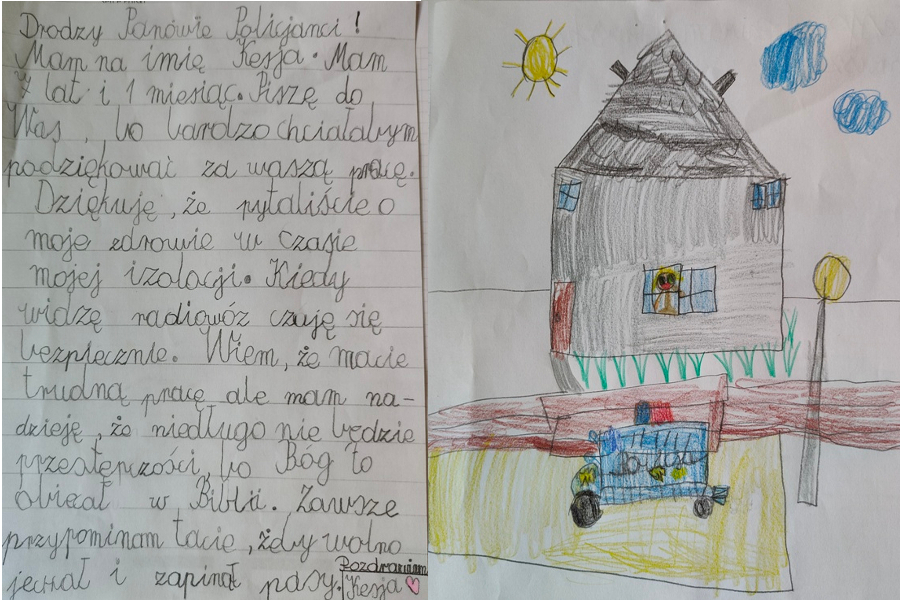 Drodzy Panówie Policjanci!
Mam na imię Kesja. Mam
7 lat i 1 miesiąc. Piszę do
Was, bo bardzo chciałabym
podziękować za waszą pracę.
Dziękuję, że pytaliście o
moje zdrowie w czasie
mojej izolacji. Kiedy
widzę radiowóz czuję się
bezpiecznie. Wiem, że macie
trudną pracę ale mam na-
dzieję, że niedługo nie będzie
przestępczości, bo Bóg to
obiecał w Biblii. Zawsze
przypominam tacie, żeby wolno
jechał i zapinał pasy.
Pozdrawiam
Kesja